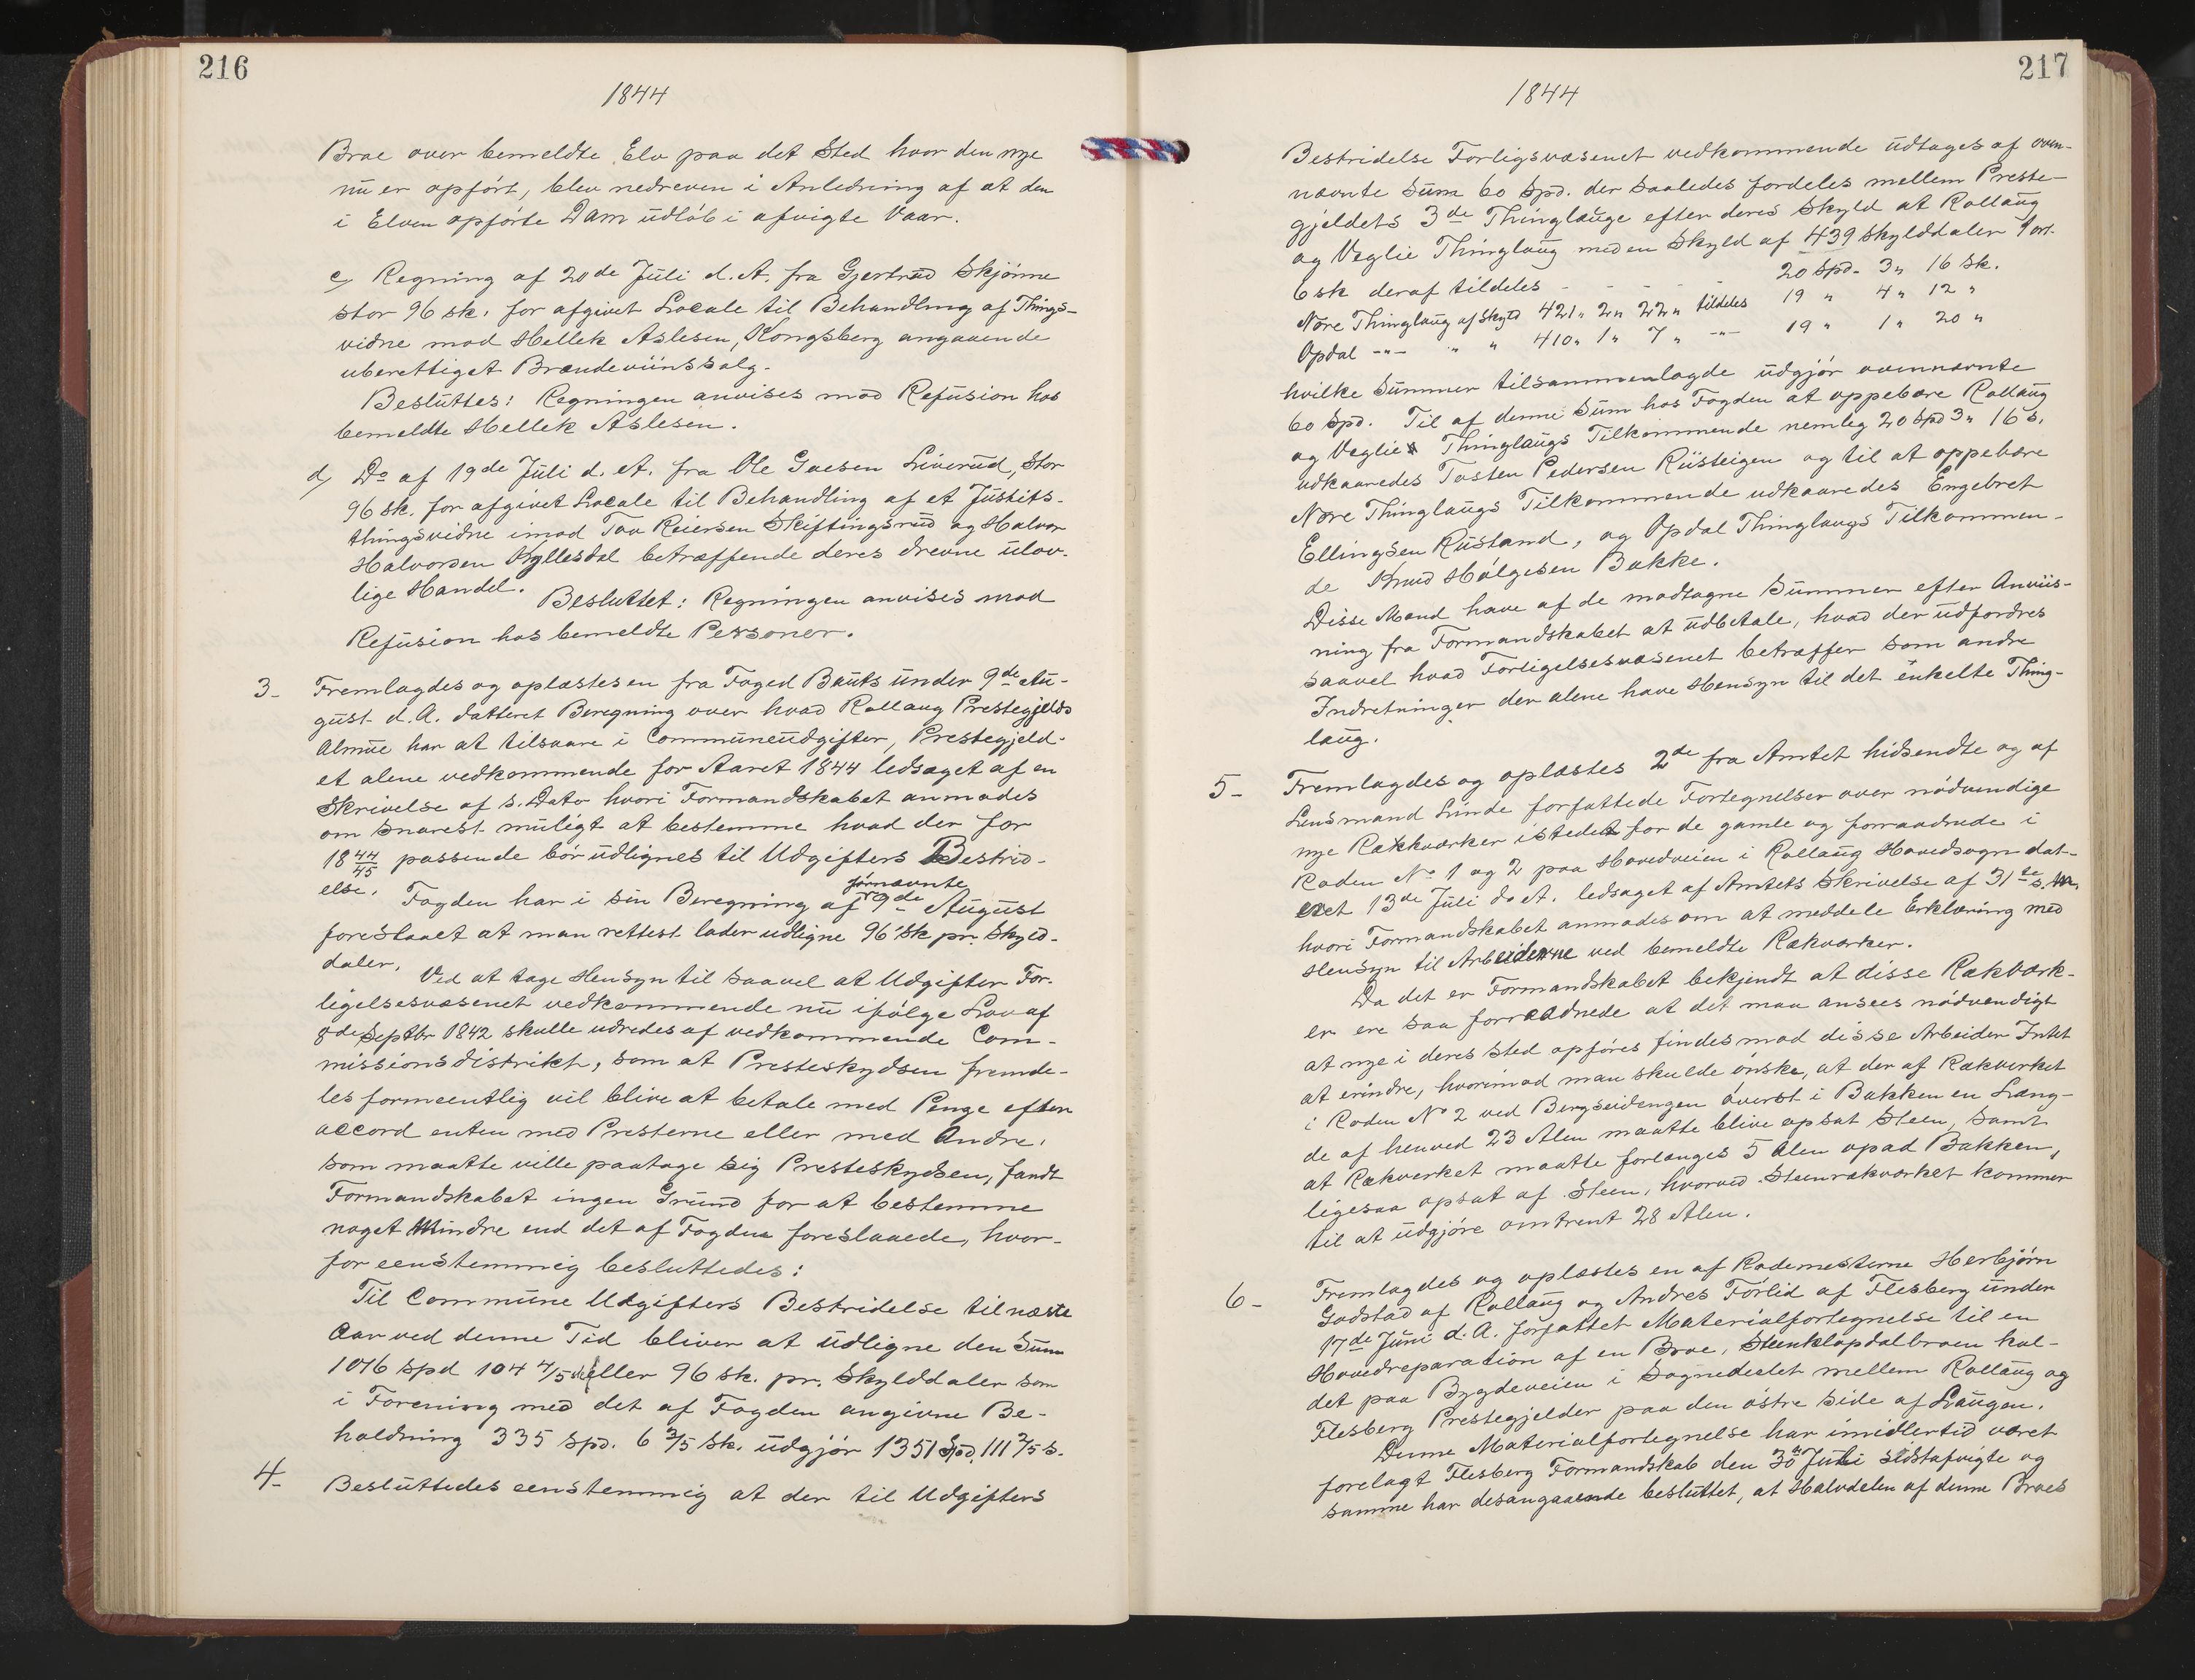 216
1844
Broe over bemeldte Elv paa det Sted hvor den nye
nu er opført, blev nedreven i Anledning af at den
i Elven opførte Dam udløb i afvigte Vaar.
c) Regning af 20de Juli d. A. fra Gjertrud Skjønne
stor 96 sk. for afgivet Locale til Behandling af Things-
vidne mod Hellek Aslesen, Kongsberg angaaende
uberettiget Brændeviinssalg.
Besluttes: Regningen anvises mod Refusion hos
bemeldte Hellek Aslesen.
d) Do af 19de Juli d. A. fra Ole Goesen Liverud, stor
96 sk. for afgivet Locale til Behandling af et Justits-
thingsvidne imod Tov Reiersen Skiftingsrud og Halvor
Halvorsen Hyllesdal betræffende deres drevne ulov-
lige Handel.
Besluttet: Regningen anvises mod
Refusion hos bemeldte Personer.
3- Fremlagdes og oplæstes en fra Foged Bauts under 9de Au-
gust d. A. datteret Beregning over hvad Rollaug Prestegjelds
Almue har at tilsvare i Communeudgifter, Prestegjeld-
et alene vedkommende for Aaret 1844 ledsaget af en
Skrivelse af s. Dato hvori Formandskabet anmodes
om snarest muligt at bestemme hvad der for
18 44/45 passende bør udlignes til Udgifters Bestrid-
else.
Fogden har i sin Beregning af førnævnte 9de August
foreslaaet at man rettest lader udligne 96 sk pr. Skyld-
daler.
Ved at tage Hensyn til saavel at Udgifter For-
ligelsesvæsenet vedkommende nu ifølge Lov af
8de Septbr 1842 skulle udredes af vedkommende Com-
missionsdistrikt, som at Presteskydsen fremde-
les formeentlig vil blive at betale med Penge efter
accord enten med Presterne eller med Andre,
som maatte ville paatage sig Presteskydsen, fandt
Formandskabet ingen Grund for at bestemme
noget Mindre end det af Fogden foreslaaede, hvor-
for eenstemmig besluttedes:
Til Commune Udgifters Bestridelse til næste
Aar ved denne Tid bliver at udligne den Sum
1016 Spd 104 4/5 sk eller 96 sk. pr. Skylddaler som
i Forening med det af Fogden angivne Be-
holdning 335 Spd. 6 3/5 sk. udgjør 1351 Spd. 111 2/5 s.
4- Besluttedes eenstemmig at der til Udgifters
217
1844
Bestridelse Forligsvæsenet vedkommende udtages af oven-
nævnte Sum 60 Spd. der saaledes fordeles mellem Preste-
gjeldets 3de Thinglauge efter deres Skyld at Rollaug
og Veglie Thinglaug med en Skyld af 439 Skylddaler 1 ort.
6 sk deraf tildeles - - - - - 20 Spd. 3 " 16 sk.
Nore Thinglaug af Skyld 421 " 2 " 22 " tildeles 19 " 4 " 12 "
Opdal -"- " " 410 " 1 " 7 " -"- 19 " 1 " 20 "
hvilke Summer tilsammenlagde udgjør ovennævnte
60 Spd. Til af denne Sum hos Fogden at oppebære Rollaug
og Veglies Thinglaugs Tilkommende nemleg 20 Spd 3 " 16 s.
udkaaredes Tosten Pedersen Rüsteigen og til at oppebære
Nore Thinglaugs Tilkommende udkaaredes Engebret
Ellingsen Rustand, og Opdal Thinglaugs Tilkommen-
de Knud Hølgesen Bakke.
Disse Mænd have af de modtagne Summer efter Anviis-
ning fra Formandskabet at udbetale, hvad der udfordres
saavel hvad Forligelsesvæsenet betræffer som andre
Indretninger der alene have Hensyn til det enkelte Thing-
laug.
5- Fremlagdes og oplæstes 2de fra Amtet hidsendte og af
Lensmand Linde forfattede Fortegnelser over nødvendige
nye Rækværker istedet for de gamle og forraadnede i
Roden No 1 og 2 paa Hovedveien i Rollaug Hovedsogn dat-
eret 13de Juli d. A. ledsaget af Amtets Skrivelse af 31te s. M.
hvori Formandskabet anmodes om at meddele Erklæring med
Hensyn til Arbeiderne ved bemeldte Rækværker.
Da det er Formandskabet bekjendt at disse Rækværk-
er ere saa forraadnede at det maa ansees nødvendigt
at nye i deres Sted opføres findes mod disse Arbeider Intet
at erindre, hvorimod man skulde ønske, at der af Rækverket
i Roden No 2 ved Bergseidengen øverst i Bakken en Læng-
de af henved 23 Alen maatte blive opsat Steen, samt
at Rækverket maatte forlænges 5 Alen opad Bakken,
ligesaa opsat af Steen, hvorved Steenrækværket kommer
til at udgjøre omtrent 28 Alen.
6- Fremlagdes og oplæstes en af Rodemesterne Herbjørn
Godstad af Rollaug og Andres Førlid af Flesberg under
17de Juni d. A. forfattet Materialfortegnelse til en
Hovedreparation af en Broe, Steenklopdalbroen kal-
det paa Bygdeveien i Sognedelet mellem Rollaug og
Flesberg Prestegjelder paa den østre Side af Laugen.
Denne Materialfortegnelse har imidlertid været
forelagt Flesberg Formandskab den 30te Juli sidstafvigte og
samme har desangaaende besluttet, at Halvdelen af denne Broes